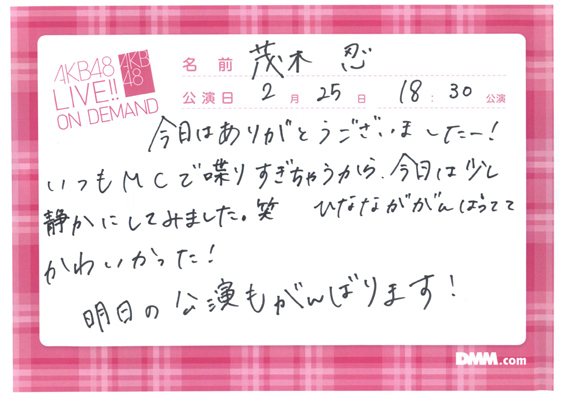 AKB48
LIVE!!
ON DEMAND
AKB
48
名前 茂木 忍
公演日 2月25日 18:30公演
今日はありがとうございましたー!
いつもMCで喋りすぎちゃうから、今日は少し
静かにしてみました。笑 ひなながががんばってて
かわいかった!
明日の公演もがんばります!
DMM.com